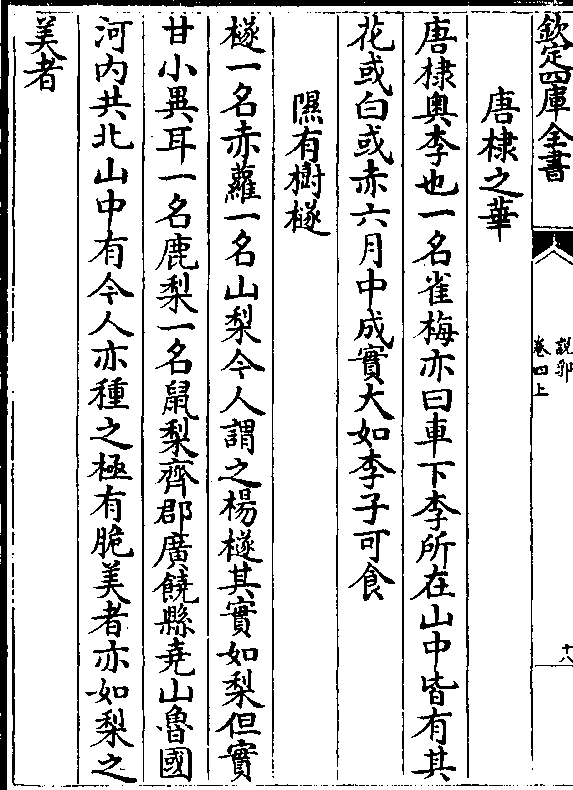 欽定四庫全書
說郛
卷四上
十八
唐棣之華
唐棣奥李也一名雀梅亦曰車下李所在山中皆有其
花或白或赤六月中成實大如李子可食
隰有樹檖
檖一名赤蘿一名山梨今人謂之楊檖其實如梨但實
甘小異耳一名鹿梨一名鼠梨齊郡廣饒縣堯山魯國
河内共北山中有今人亦種之極有脆美者亦如梨之
美者